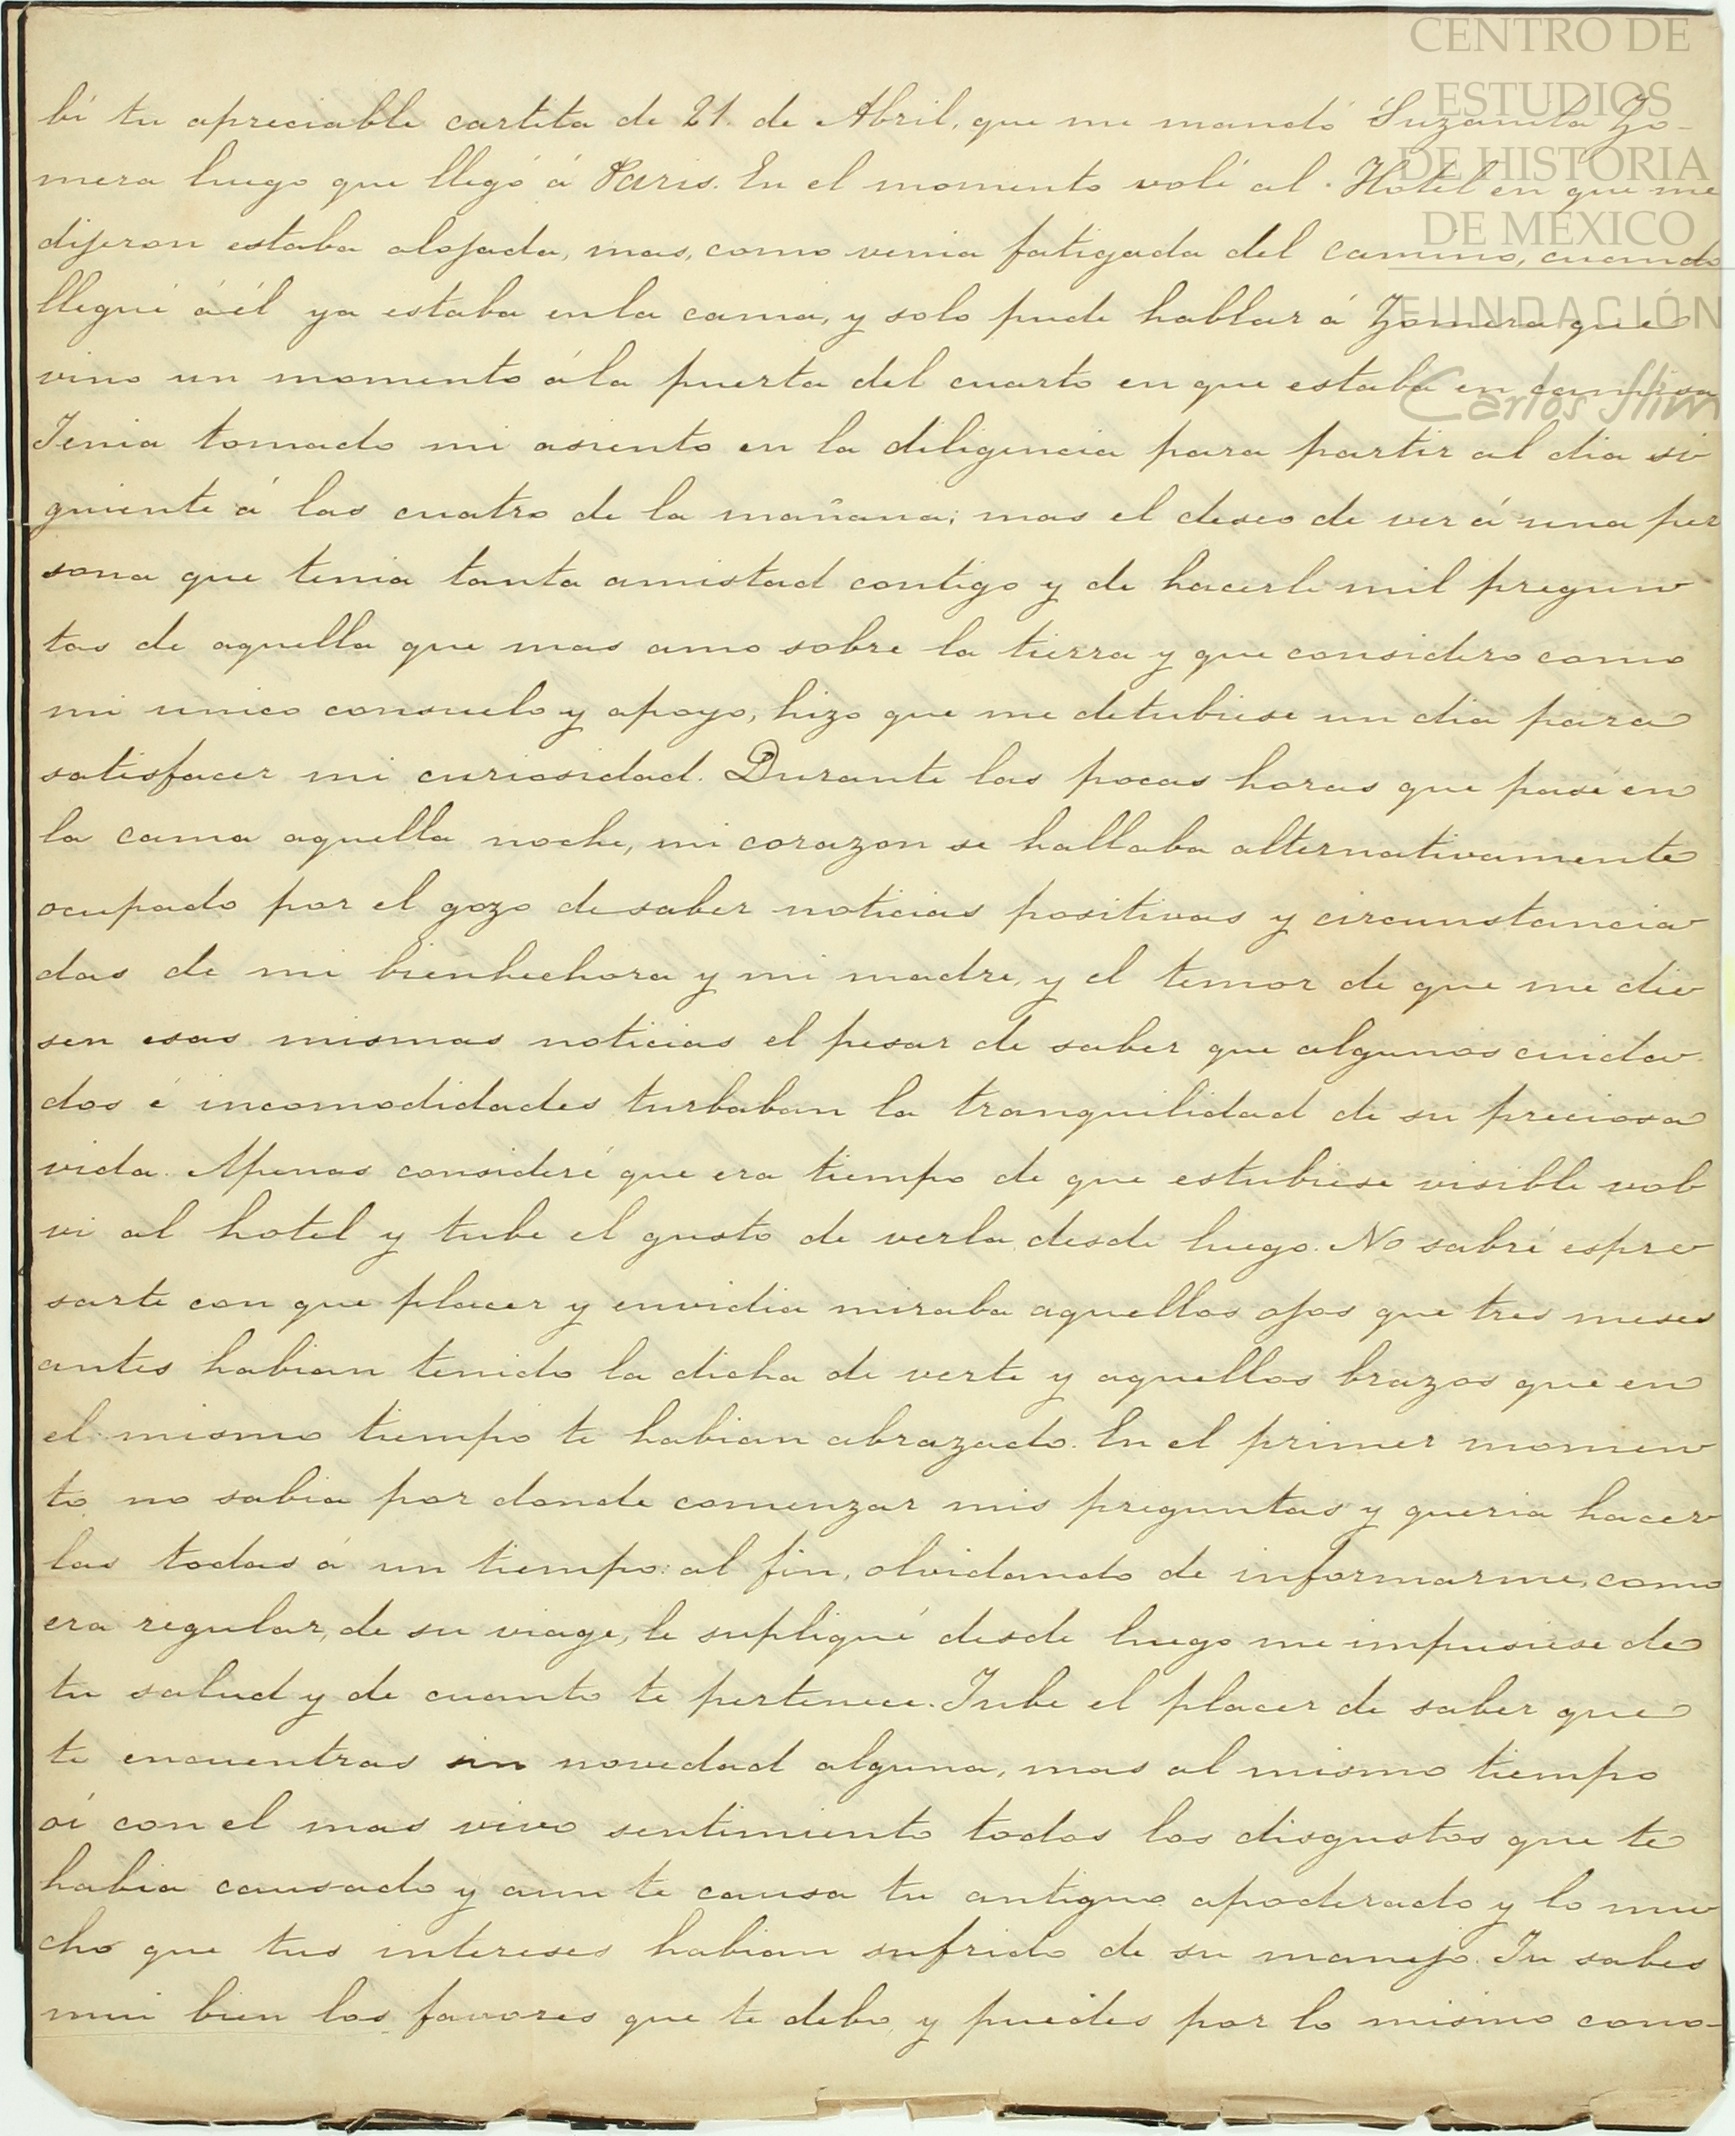 CENTRO DE
ESTUDIOS
DE HISTORIA
DE MÉXICO
FUNDACIÓN
Carlos Slim
bí tu apreciable cartita de 21. de Abril, que me mandó Suzanita Go-
mera luego que llegó á Paris. En el momento volé al Hotel en que me
dijeron estaba alojada, mas, como venia fatigada del camino, cuando
llegué á él ya estaba en la cama, y solo pude hablar á Gomera que
vino un momento á la puerta del cuarto en que estaba en camisa
Tenia tomado mi asiento en la diligencia para partir al dia si
guiente á las cuatro de la mañana; mas el deseo de ver á una per
sona que tenia tanta amistad contigo y de hacerle mil pregun
tas de aquella que mas amo sobre la tierra y que considero como
mi unico consuelo y apoyo, hizo que me detubiese un dia para
satisfacer mi curiosidad. Durante las pocas horas que pasé en
la cama aquella noche, mi corazon se hallaba alternativamente
ocupado por el gozo de saber noticias positivas y circunstancia
das de mi bienhechora y mi madre, y el temor de que me die
sen esas mismas noticias el pesar de saber que algunos cuida
dos é incomodidades turbaban la tranquilidad de su preciosa
vida. Apenas consideré que era tiempo de que estubiese visible vol
vi al hotel y tube el gusto de verla desde luego. No sabré espre
sarte con que placer y envidia miraba aquellos ojos que tres meses
antes habian tenido la dicha de verte y aquellos brazos que en
el mismo tiempo te habian abrazado. En el primer momen
to no sabia por donde comenzar mis preguntas y queria hacer
las todas á un tiempo: al fin, olvidando de informarme, como
era regular, de su viage, le supliqué desde luego me impusiese de
tu salud y de cuanto te pertenece. Tube el placer de saber que
te encuentras sin novedad alguna, mas al mismo tiempo
oí con el mas vivo sentimiento todos los disgustos que te
habia causado y aun te causa tu antiguo apoderado y lo mu
cho que tus intereses habian sufrido de su manejo. Tu sabes
mui bien los favores que te debo y puedes por lo mismo cono-